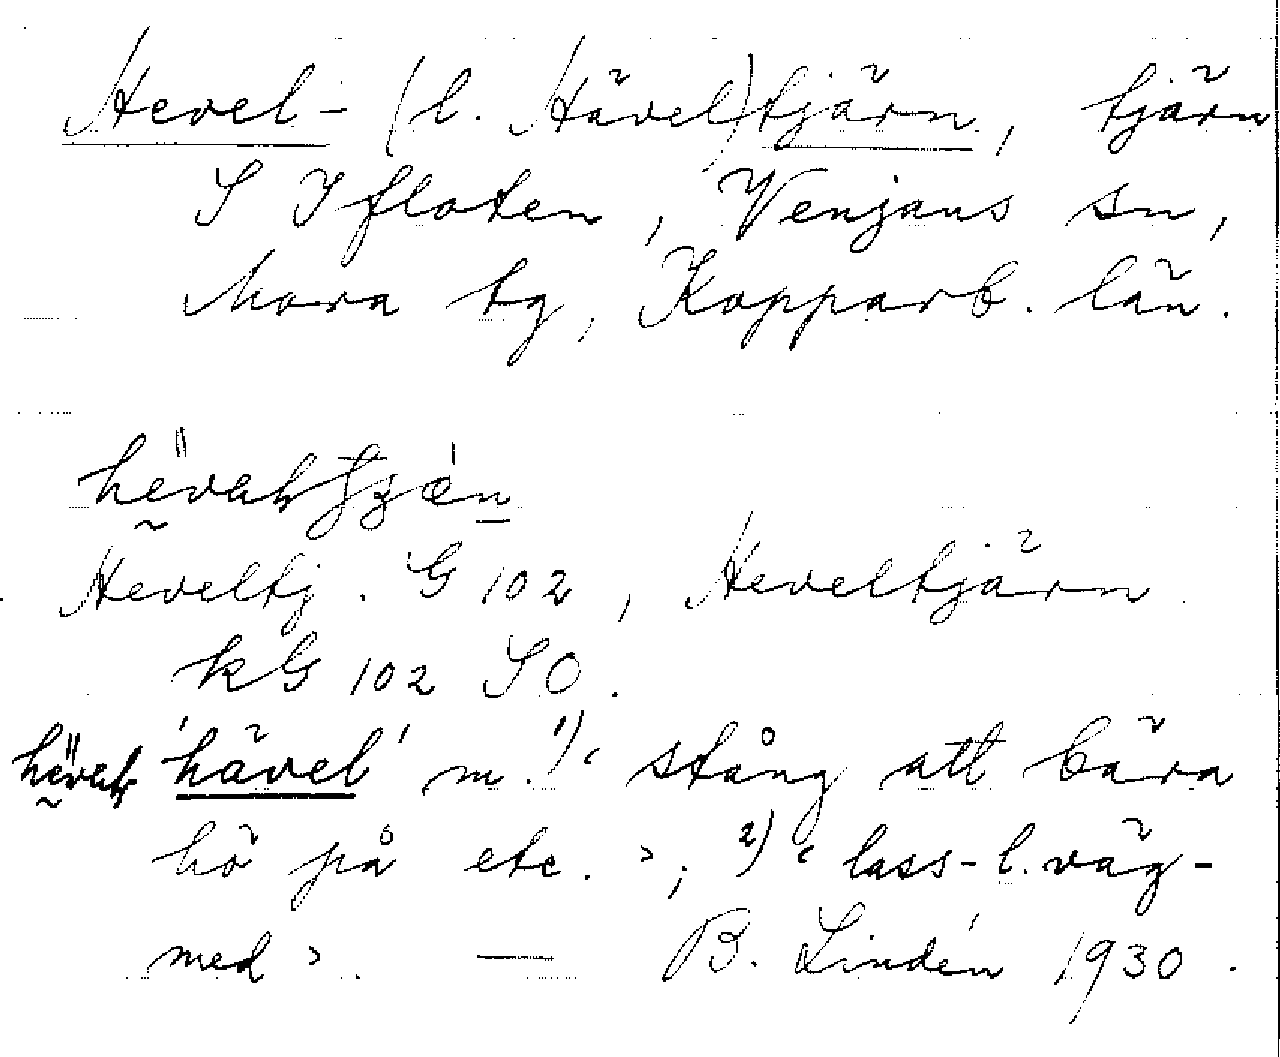 Hevel- (l. Hävel)tjärn, tjärn
S Ifloten, Venjans sn,
Mora tg, Kopparb. län.
Heveltj. G 102, Heveltjärn
kG 102 SO.
'hävel' m. 1) ‹ stång att bära
hö på etc. ›; 2) ‹ lass- l. väg-
med ›. — B. Lindén 1930.